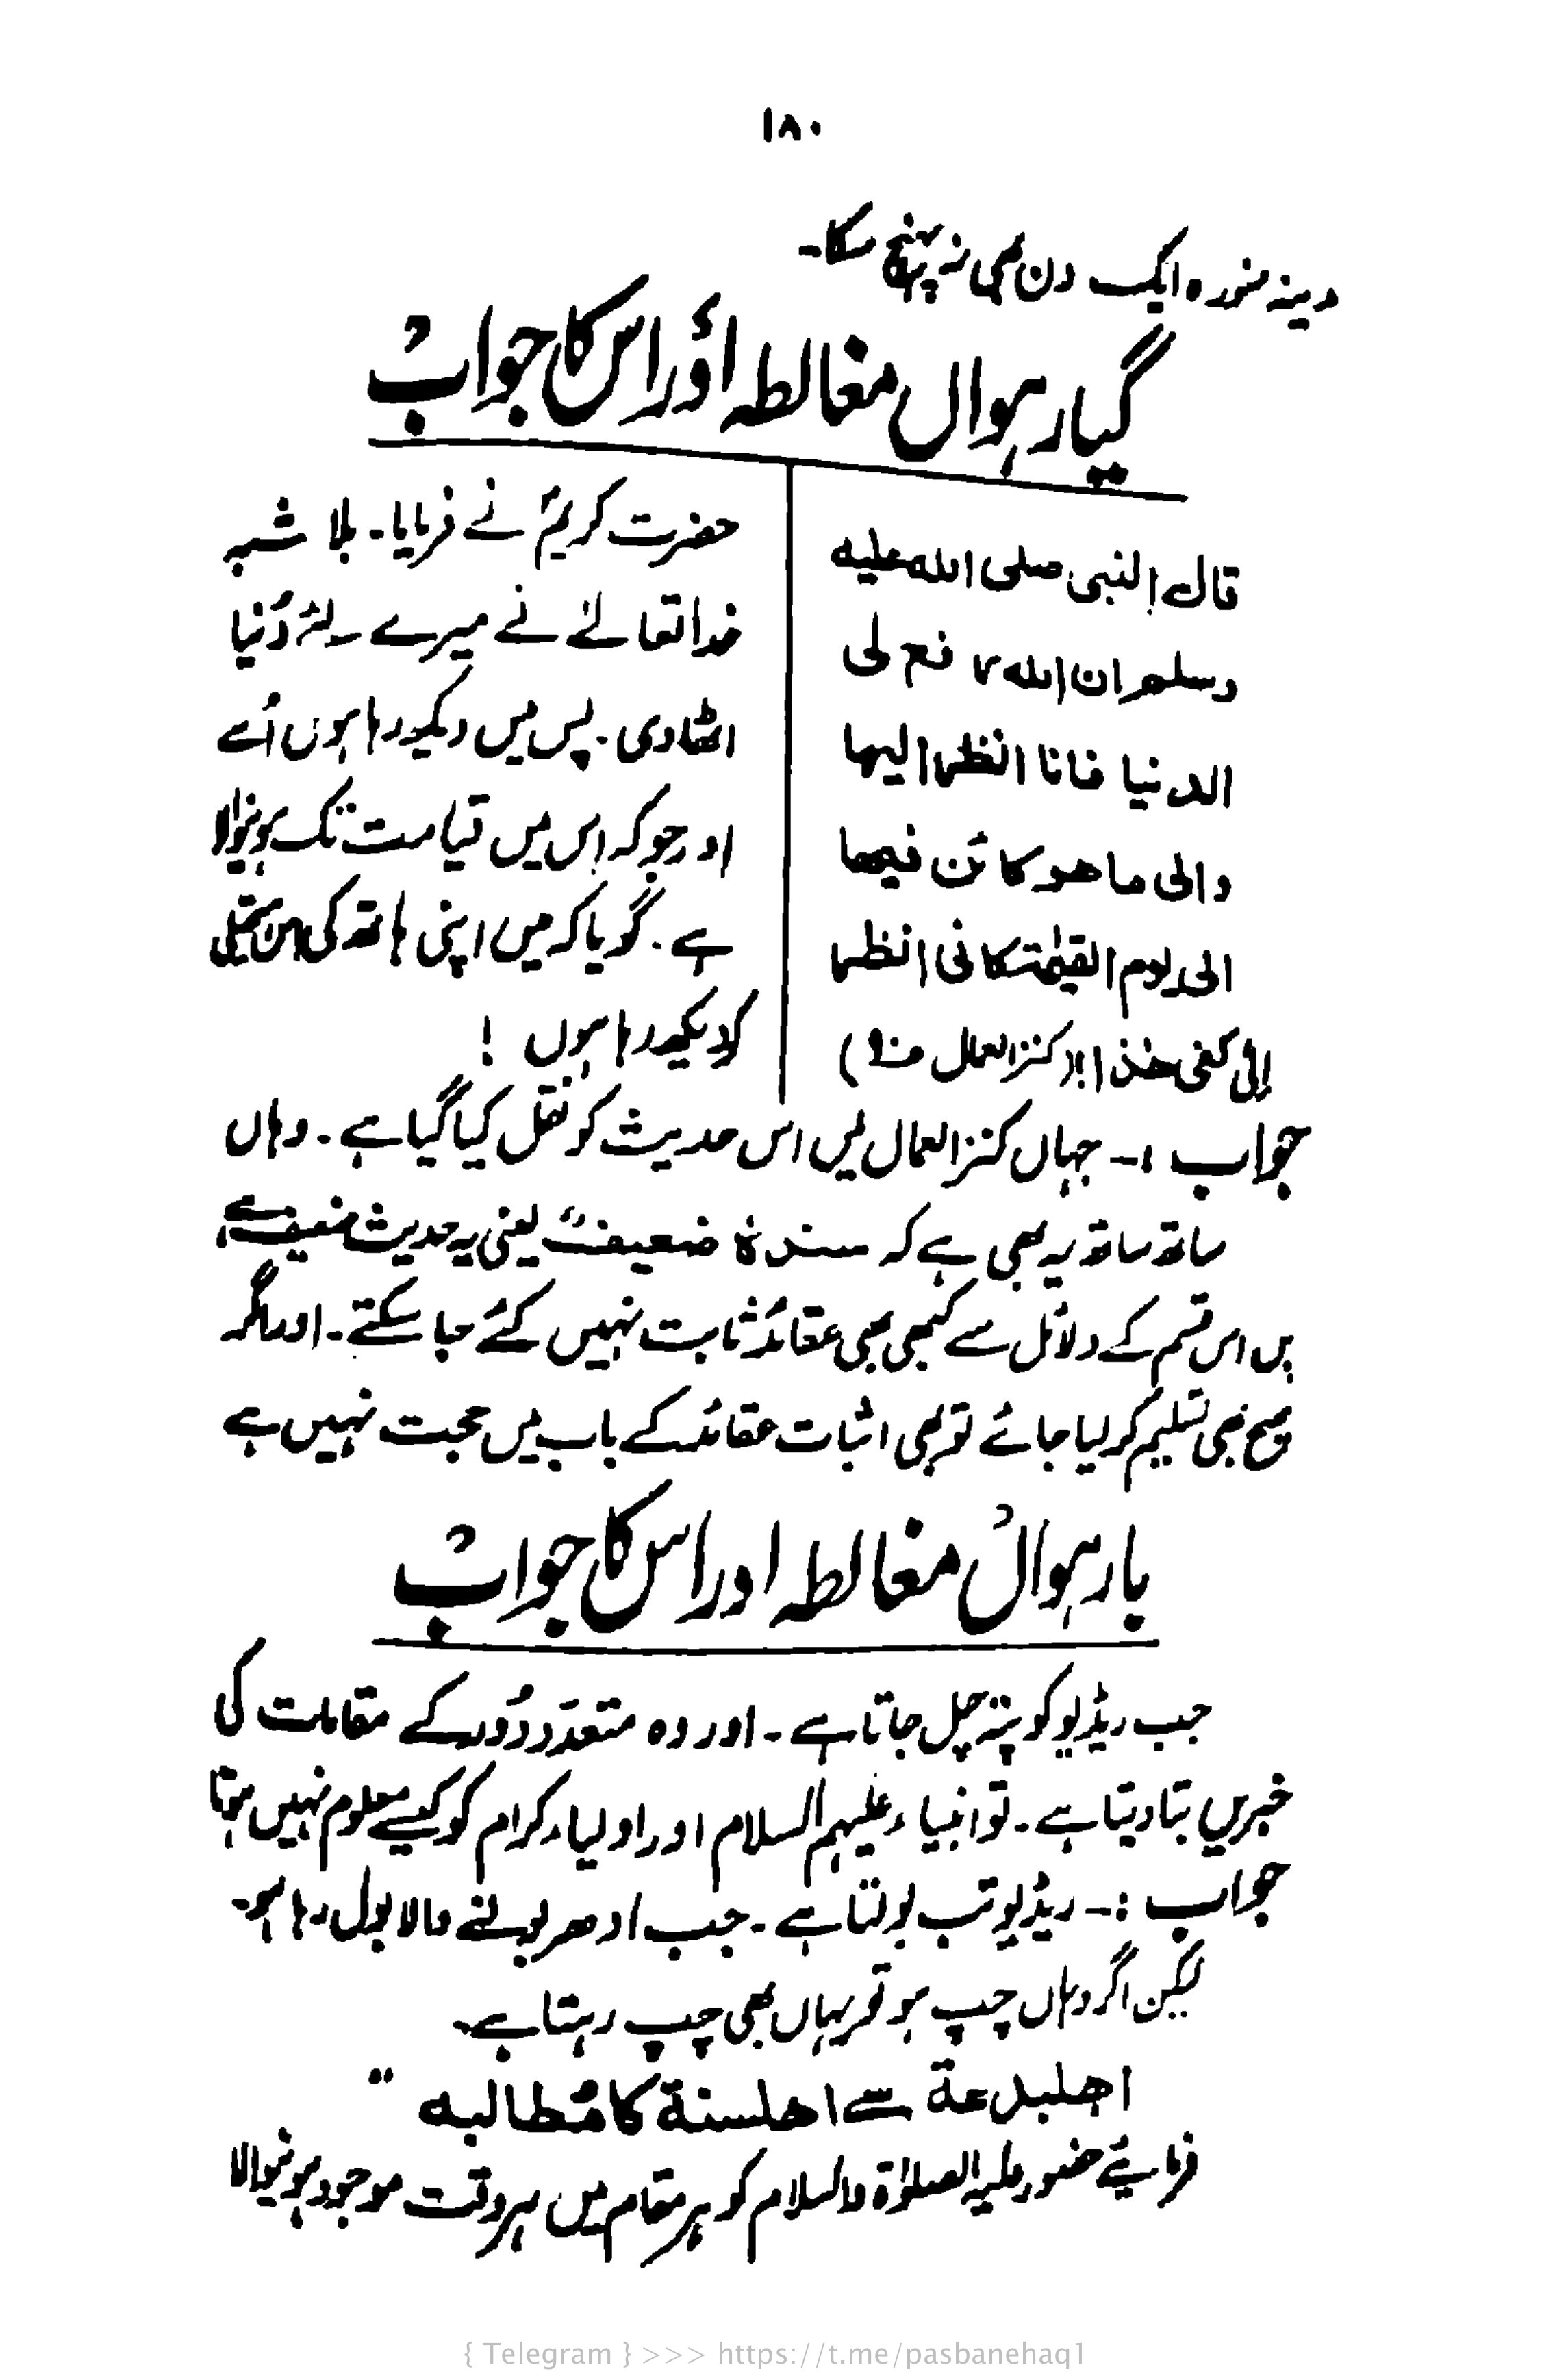 ۱۸۰
مدینہ منورہ ایک دن بھی نہ پہنچ سکا۔
گیارہواں مغالطہ اور اس کا جواب
قال النبی صلی اللہ علیہ
وسلم ان اللہ رفع لی
الدنیا فانا انظر الیہا
والی ما ھو کائن فیھا
الی یوم القیٰمۃ کانی انظر
الی کفی ھذہ (کنز العمال
حضرت کریمؐ نے فرمایا۔ بلا شبہ
خدا تعالےٰ نے میرے لئے دُنیا
اٹھا دی۔ پس میں دیکھ رہا ہوں اُسے
اور جو کہ اس میں قیامت تک ہونیوالا
ہے۔ گویا کہ میں اپنی ہاتھ کی ہتھیلی
کو دیکھ رہا ہوں !
جواب :۔ جہاں کنز العمال میں اس حدیث کو نقل کیا گیا ہے۔ وہاں
ساتھ ساتھ یہ بھی ہے کہ سندہٗ ضعیفٌ یعنی یہ حدیث ضعیف ہے
پس اس قسم کے دلائل سے کبھی بھی عقائد ثابت نہیں کئے جا سکتے۔ اور اگر
صحیح بھی تسلیم کر لیا جائے تو بھی اثبات عقائد کے باب میں حجت نہیں ہے
بارہواں مغالطہ اور اس کا جواب
جب ریڈیو کو پتہ چل جاتا ہے۔ اور وہ متعدّد دُور کے مقامات کی
خبریں بتا دیتا ہے۔ تو انبیاء علیہم السلام اور اولیاء کرام کو کیسے معلوم نہیں ہوتا
جواب :۔ ریڈیو تب بولتا ہے۔ جب ادھر بولنے والا بول رہا ہو۔
لیکن اگر وہاں چپ ہو تو یہاں بھی چپ رہتا ہے۔
اھلبدعة سے اھلسنة کا مُطالبہ
فرمایئے حضور علیہ الصلوٰۃ والسلام کو ہر مقام میں ہر وقت موجود ہونیوالا
{ Telegram } >>> https://t.me/pasbanehaq1